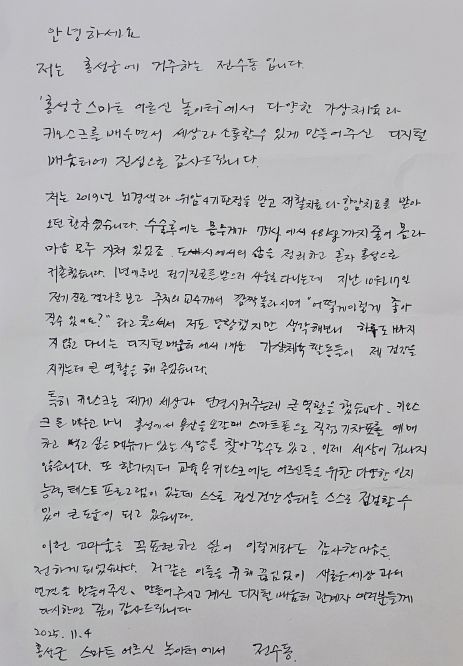 안녕하세요
저는 홍성군에 거주하는 전수동입니다.
'홍성군 스마트 어르신 놀이터'에서 다양한 가상체육과
키오스크를 배우면서 세상과 소통할수 있게 만들어주신 디지털
배움터에 진심으로 감사드립니다.
저는 2019년 뇌경색과 위암4기판정을 받고 재활치료와 항암치료를 받아
오던 환자였습니다. 수술후에는 몸무게가 78kg에서 48kg까지 줄어 몸과
마음 모두 지쳐 있었죠. 도시에서의 삶을 정리하고 혼자 홍성으로
귀촌했습니다. 1년에두번 정기진료를 받으러 서울로 다니는데 지난 10월17일
정기진료 결과를 보고 주치의 교수께서 깜짝놀라시며 "어떻게이렇게 좋아
질수 있어요?" 라고 물으셔서 저도 당황했지만 생각해보니 하루도 빠지
지 않고 다니는 디지털 배움터에서 배운 가상체육 활동들이 제 건강을
지키는데 큰 역할을 해 주었습니다.
특히 키오스크는 제게 세상과 연결시켜주는데 큰 역할을 했습니다. 키오스
크를 배우고 나니 홍성에서 용산을 오갈때 스마트폰으로 직접 기차표를 예매
하고 먹고 싶은메뉴가 있는 식당을 찾아갈수도 있고, 이제 세상이 겁나지
않습니다. 또 한가지더 교육용키오스크에는 어르신들을 위한 다양한 인지
능력 테스트 프로그램이 있는데 스스로 정신건강 상태를 스스로 점검할 수
있어 큰도움이 되고 있습니다.
이런 고마움을 꼭표현하고 싶어 이렇게라도 감사한마음을
전하게 되었습니다. 저같은 이들을 위해 끊임없이 새로운세상과의
연결을 만들어주신, 만들어주시고 계신 디지털 배움터 관계자 여러분들께
다시한번 깊이 감사드립니다
2025. 11. 4
홍성군 스마트 어르신 놀이터에서 전수동.